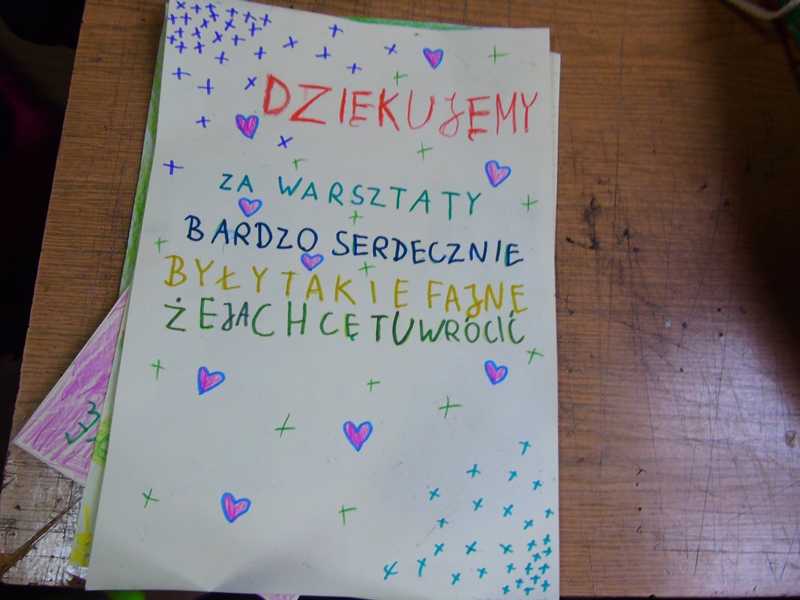 DZIĘKUJEMY
ZA WARSZTATY
BARDZO SERDECZNIE
BYŁY TAKIE FAJNE
ŻE JA CHCĘ TU WRÓCIĆ